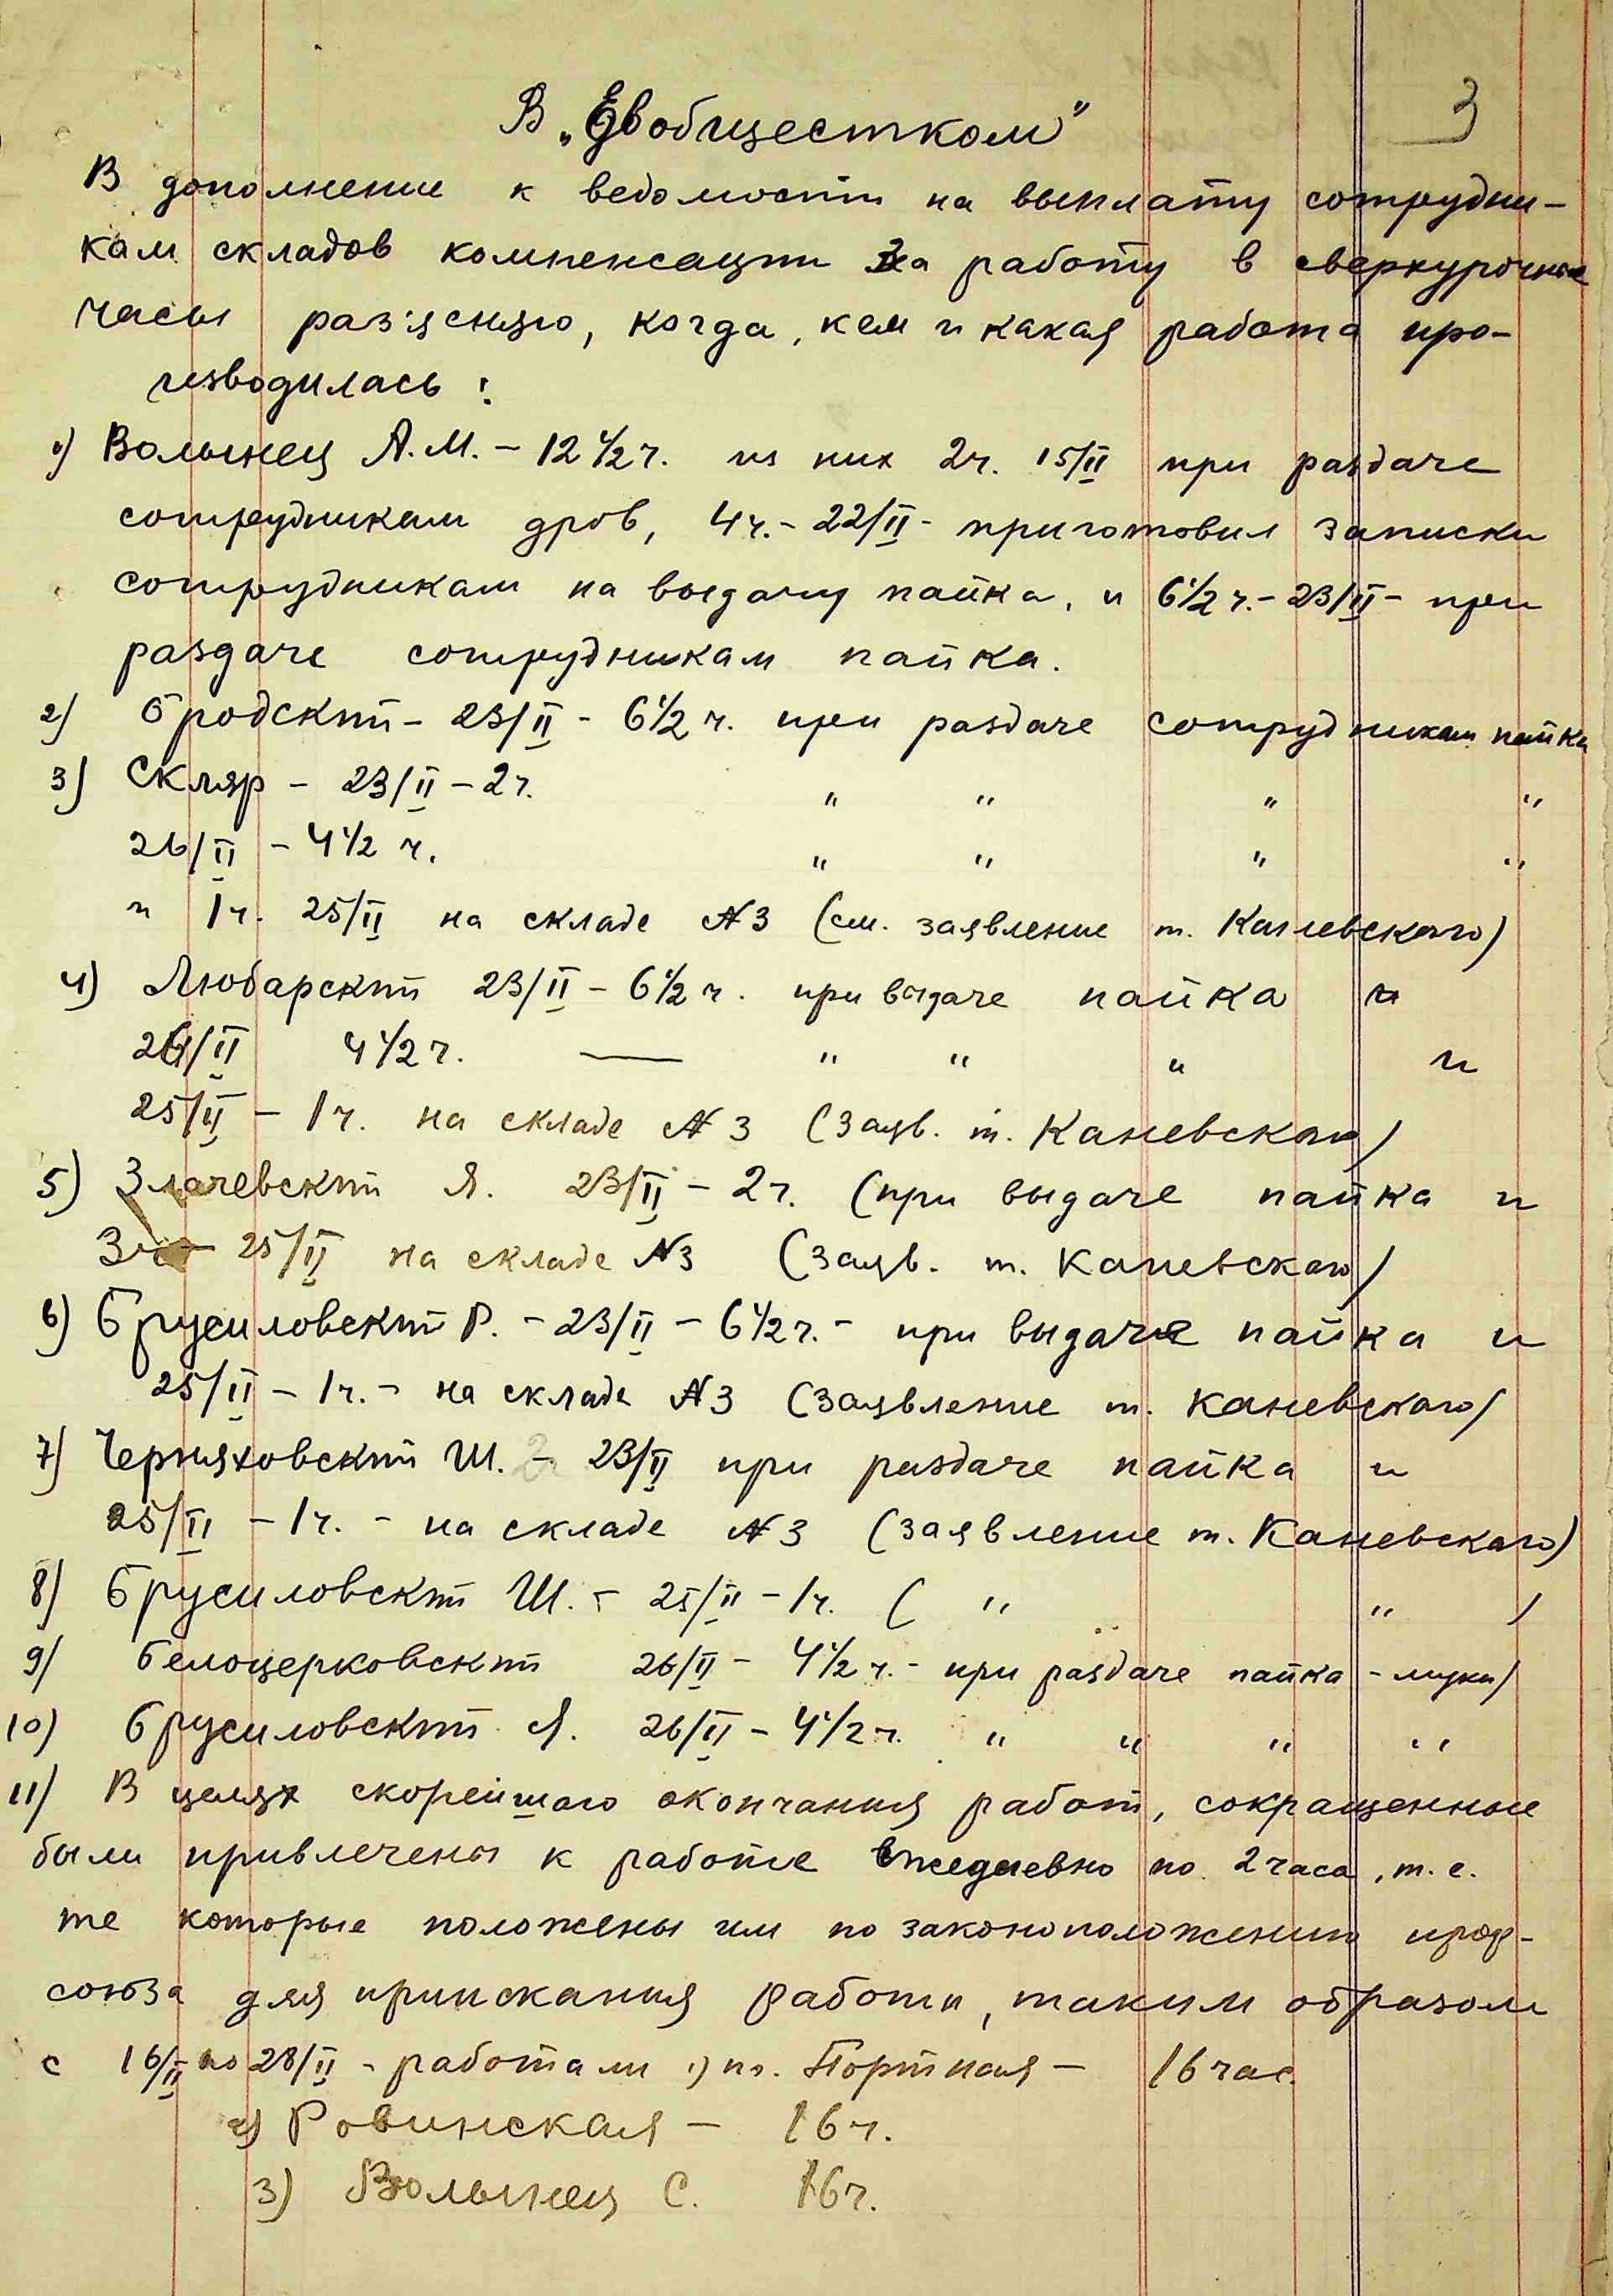 3
В „Евобщестком"
В дополнение к ведомости на выплату сотрудни-
кам складов компенсации за работу в сверхурочные
часы раз'ясняю, когда, кем и какая работа про-
изводилась:
1) Волынец А.М. - 12 1/2 ч. из них 2ч. 15/II при раздаче
сотрудникам дров, 4ч. - 22/II - приготовил записки
сотрудникам на выдачу пайка, и 6 1/2 ч. - 23/II - при
раздаче сотрудникам пайка.
2) Бродский - 23/II - 6 1/2 ч. при раздаче сотрудникам пайка
3) Скляр - 23/II - 2ч. " " " "
26/II - 4 1/2 ч. " " " "
и 1ч. 25/II на складе № 3 (см. заявление т. Каневского)
4) Любарский 23/II - 6 1/2 ч. при выдаче пайка и
26/II 4 1/2 ч. — " " " и
25/II - 1ч. на складе № 3 (Заяв. т. Каневского)
5) Злачевский Я. 23/II - 2ч. (при выдаче пайка и
3ч - 25/II на складе №3 (Заяв. т. Каневского)
6) Брусиловский Р. - 23/II - 6 1/2 ч. - при выдаче пайка и
25/II - 1ч. - на складе № 3 (Заявление т. Каневского)
7) Черняховский Ш. - 23/II при раздаче пайка и
25/II - 1ч. - на складе № 3 (заявление т. Каневского)
8) Брусиловский Ш. - 25/II - 1ч. ( " " )
9) Белоцерковский 26/II - 4 1/2 ч. - при раздаче пайка - муки)
10) Брусиловский Я. 26/II - 4 1/2 ч. " " " "
11) В целях скорейшаго окончания работ, сокращенные
были привлечены к работе ежедневно по 2 часа, т.е.
те которые положены им по законоположению проф-
союза для приискания работы, таким образом
с 16/II по 28/II - работали 1) т. Портная - 16 час.
2) Ровинская - 16ч.
3) Волынец С. 16ч.